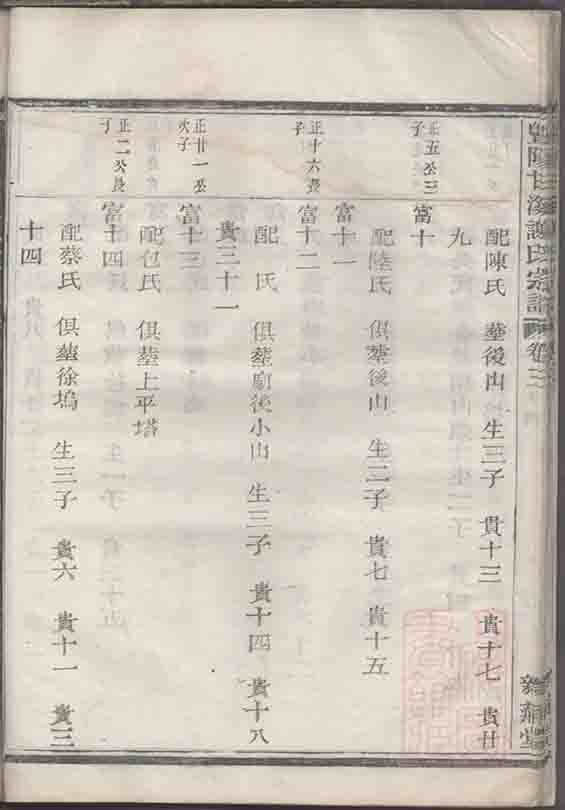 暨陽甘溪謝氏宗譜 卷三
配陳氏 葬後山 生三子 貴十三 貴十七 貴廿
九
正五公三子
富十
配陸氏 俱葬後山 生二子 貴七 貴十五
富十一
正十六長子
富十二
配 氏 俱葬廟後小山 生三子 貴十四 貴十八
貴三十一
正廿一公次子
富十三
配包氏 俱葬上平塔
正二公長丁
富十四
配蔡氏 俱葬徐塢 生三子 貴六 貴十一 貴三
十四